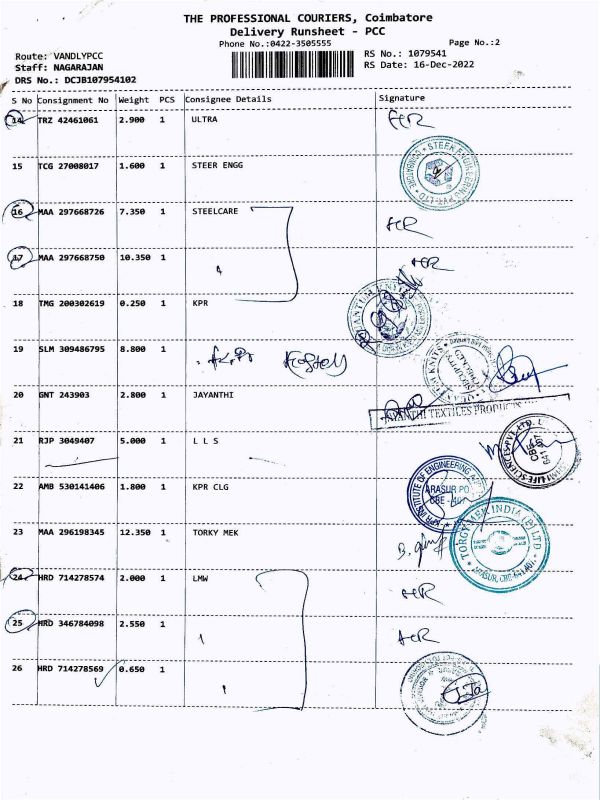 THE PROFESSIONAL COURIERS, Coimbatore
Delivery Runsheet - PCC
Phone No.:0422-3505555
Page No.:2
Route: VANDLYPCC
RS No.: 1079541
Staff: NAGARAJAN
RS Date: 16-Dec-2022
DRS No.: DCJB107954102
S No Consignment No Weight PCS Consignee Details Signature
14 TRZ 42461061 2.900 1 ULTRA
15 TCG 27008017 1.600 1 STEER ENGG
16 MAA 297668726 7.350 1 STEELCARE
17 MAA 297668750 10.350 1
18 TMG 200302619 0.250 1 KPR
19 SLM 309486795 8.800 1
20 GNT 243903 2.800 1 JAYANTHI
JAYANTHI TEXTILES PRODUCTS
21 RJP 3049407 5.000 1 L L S
22 AMB 530141406 1.800 1 KPR CLG
KPR INSTITUTE OF ENGINEERING
ARASUR PO
CBE - 407
23 MAA 296198345 12.350 1 TORKY MEK
TORGYMEK INDIA (P) LTD
ARASUR, CBE-641 407.
24 HRD 714278574 2.000 1 LMW
25 HRD 346784098 2.550 1
26 HRD 714278569 0.650 1